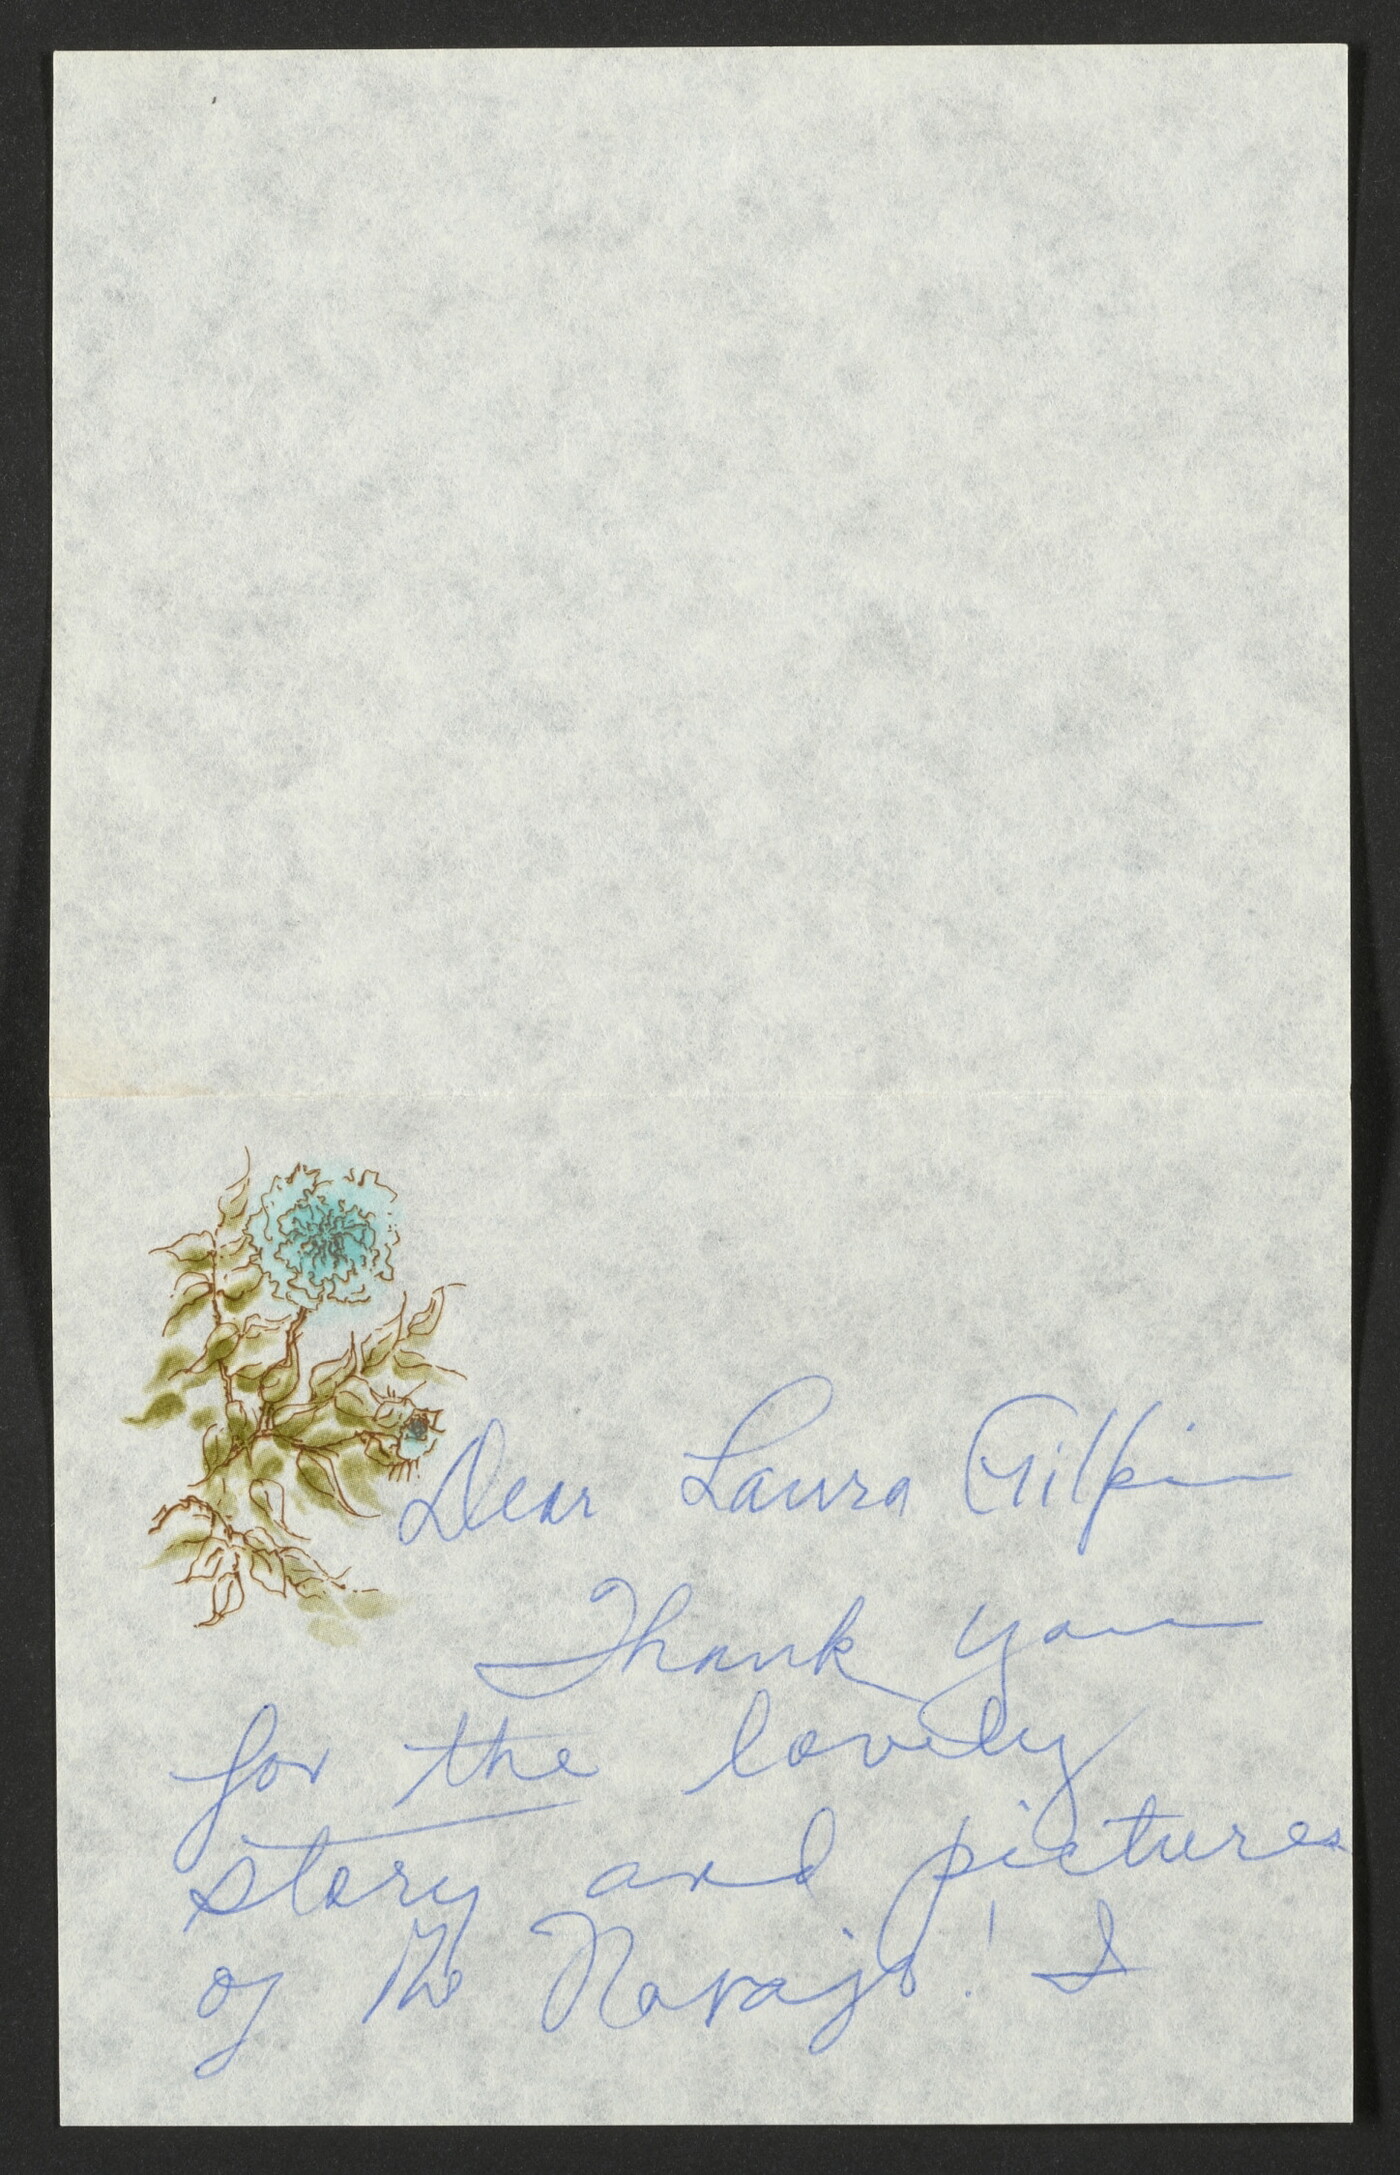 Dear Laura Gilpin
Thank you
for the lovely
story and pictures
of The Navajo! I